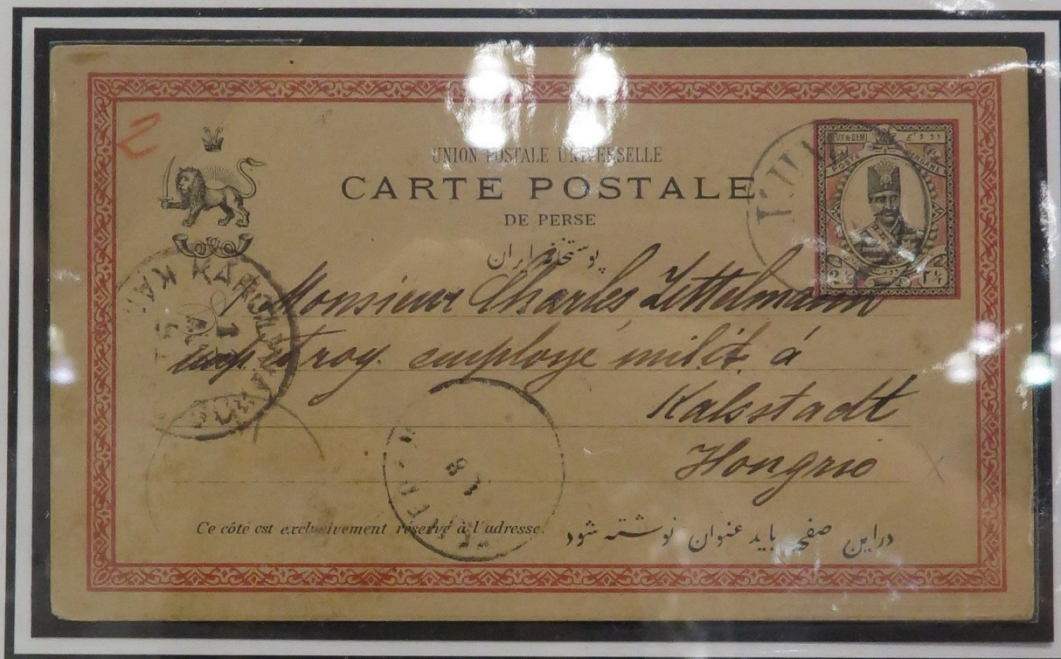 2
UNION POSTALE UNIVERSELLE
CARTE POSTALE
DE PERSE
پوستخانه ایران
2½ ۲½
Monsieur Charles Zettelmann
imp. et roy. employe milit. à
Kalsstadt
Hongrie
Ce côté est exclusivement réservé à l'adresse.
دراین صفحه باید عنوان نوشته شود